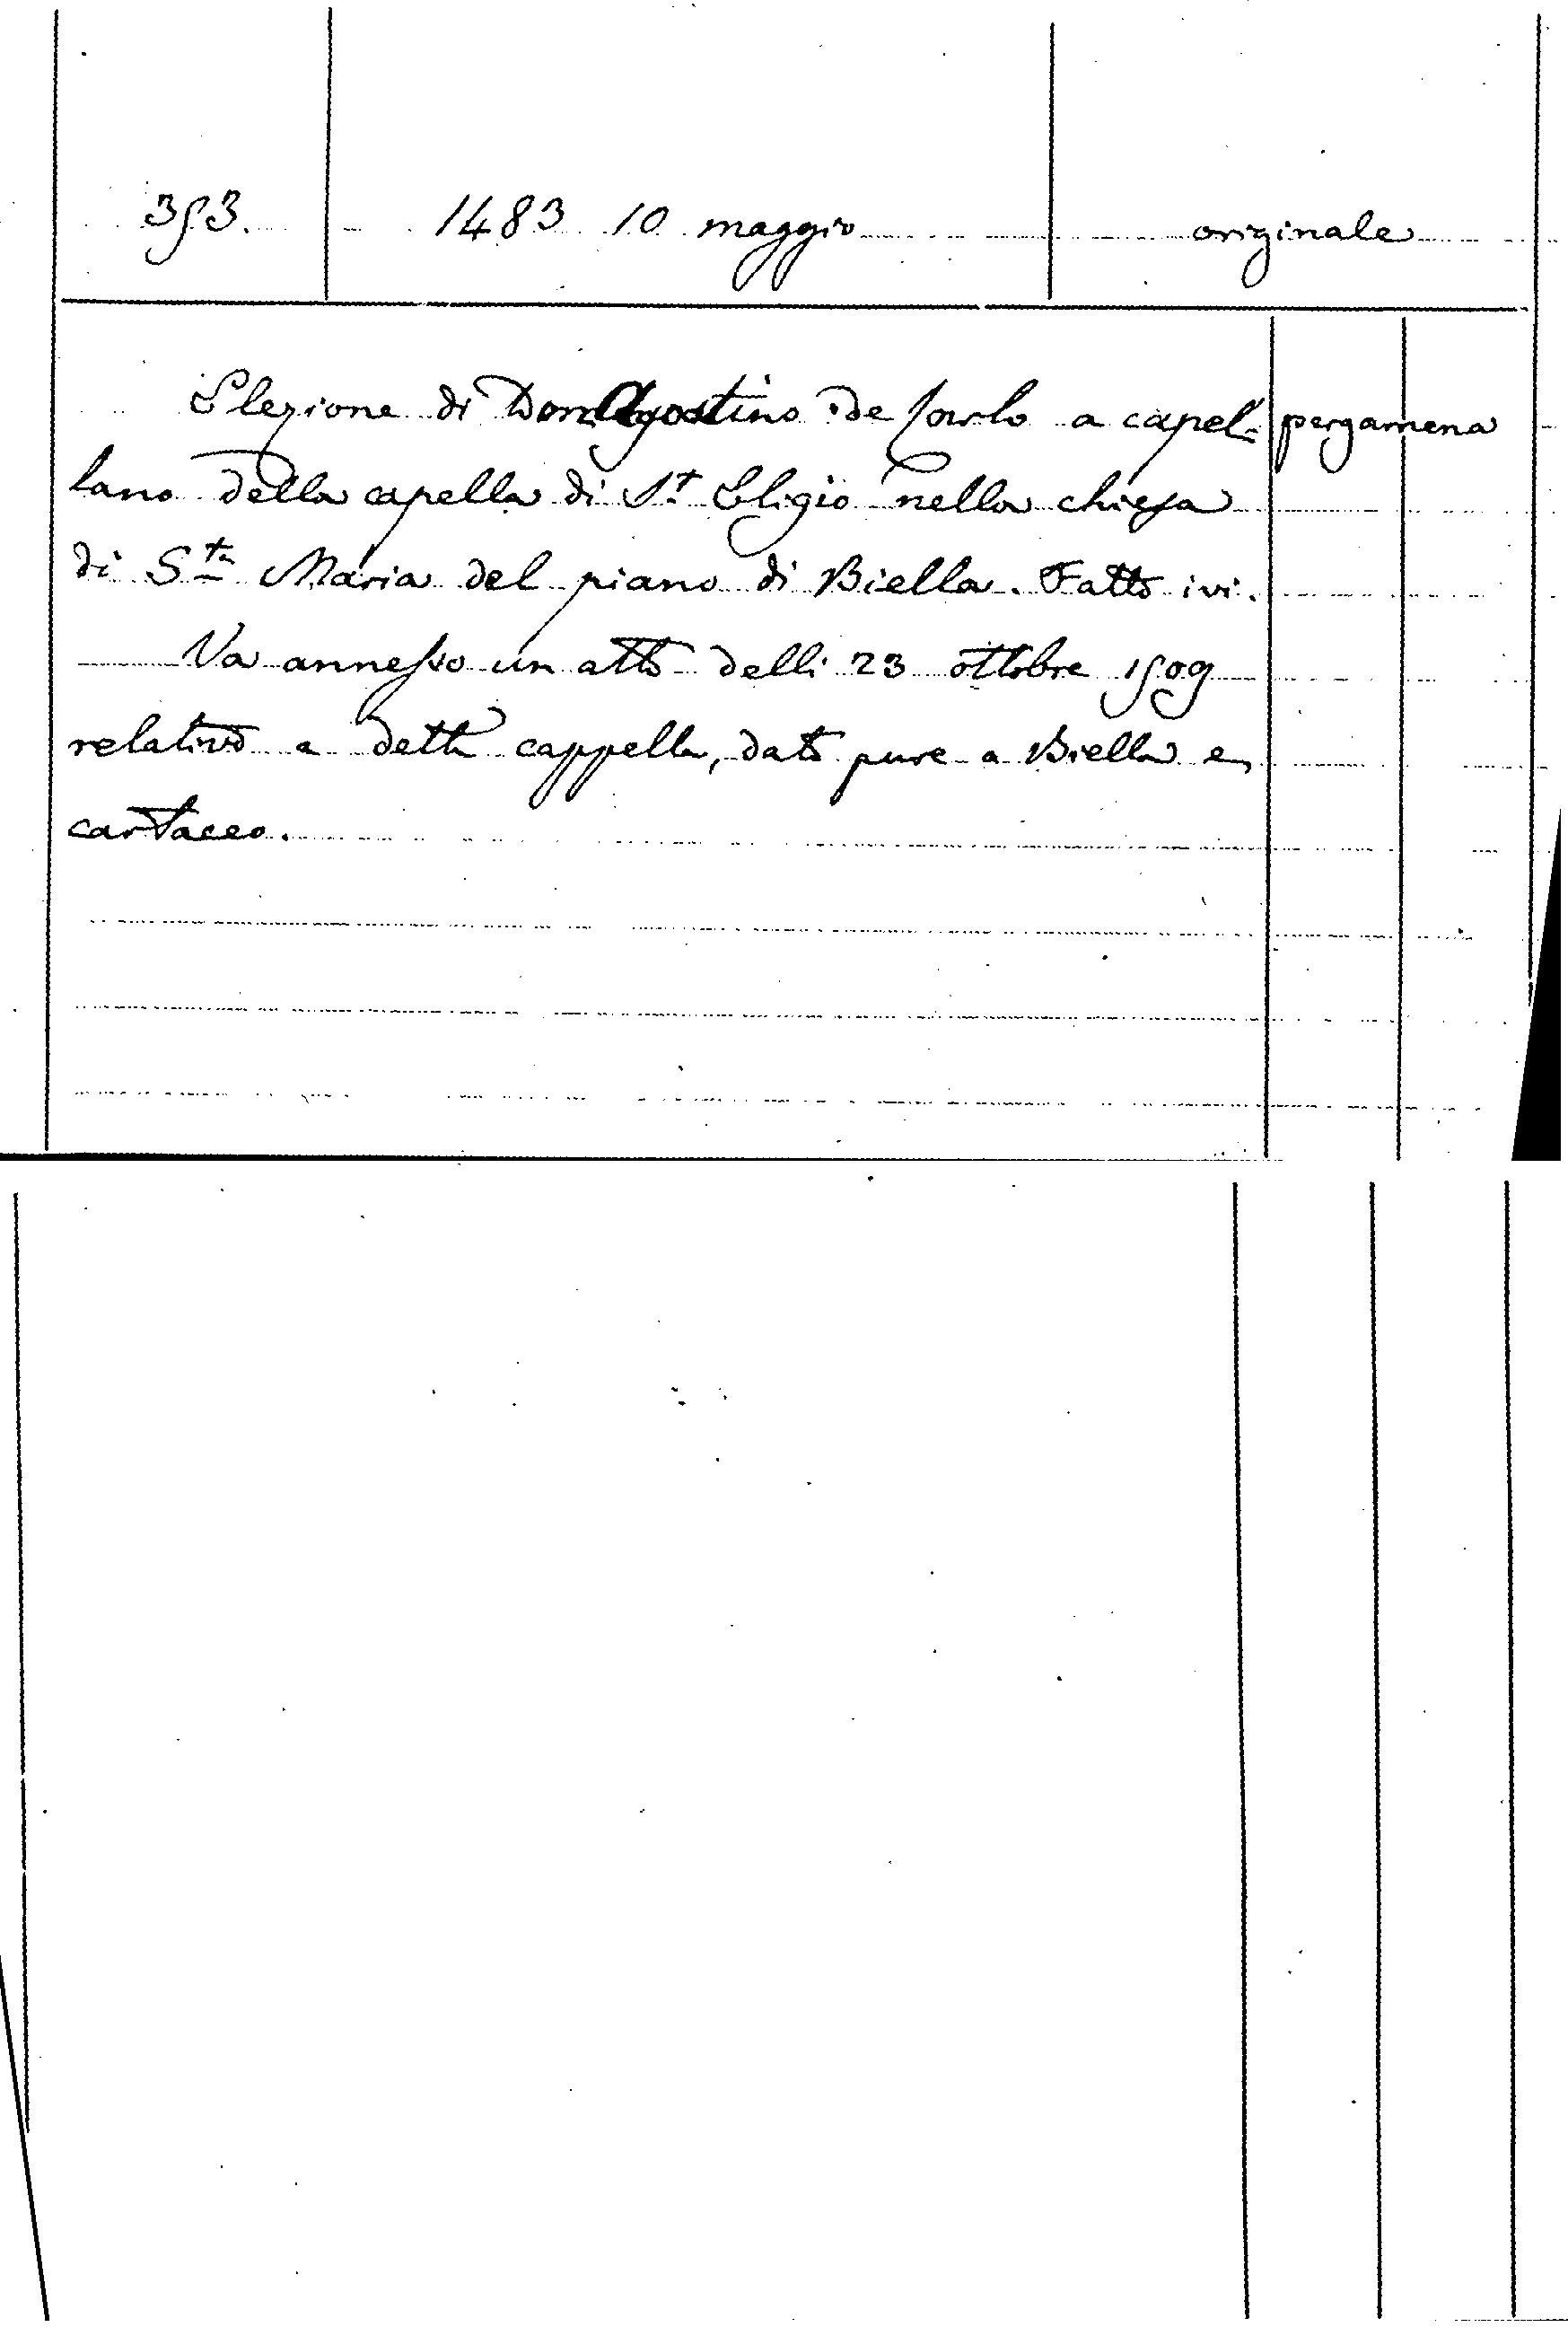 353. 1483 10 maggio originale
Elezione di Don Agostino de a capel= pergamena
lano della capella di St Eligio nella chiesa
di Sta Maria del piano di Biella. Fatto ivi.
Va annesso un atto delli 23 ottobre 1509
relativo a detta cappella, dato pure a Biella e
cartaceo.